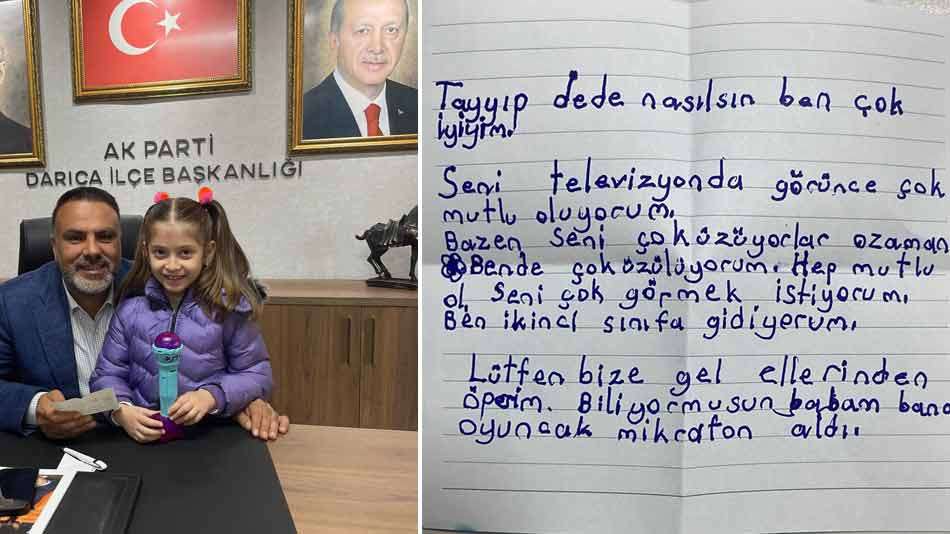 AK PARTİ
DARICA İLÇE BAŞKANLIĞI
Tayyıp dede nasılsın ben çok
iyiyim.
Seni televizyonda görünce çok
mutlu oluyorum.
Bazen seni çoküzüyorlar ozaman
Bende çoküzülüyorum. Hep mutlu
ol. Seni çok görmek istiyorum.
Ben ikinci sınıfa gidiyerum.
Lütfen bize gel ellerinden
öperim. Biliyormusun babam bana
oyuncak mikrafon aldı.